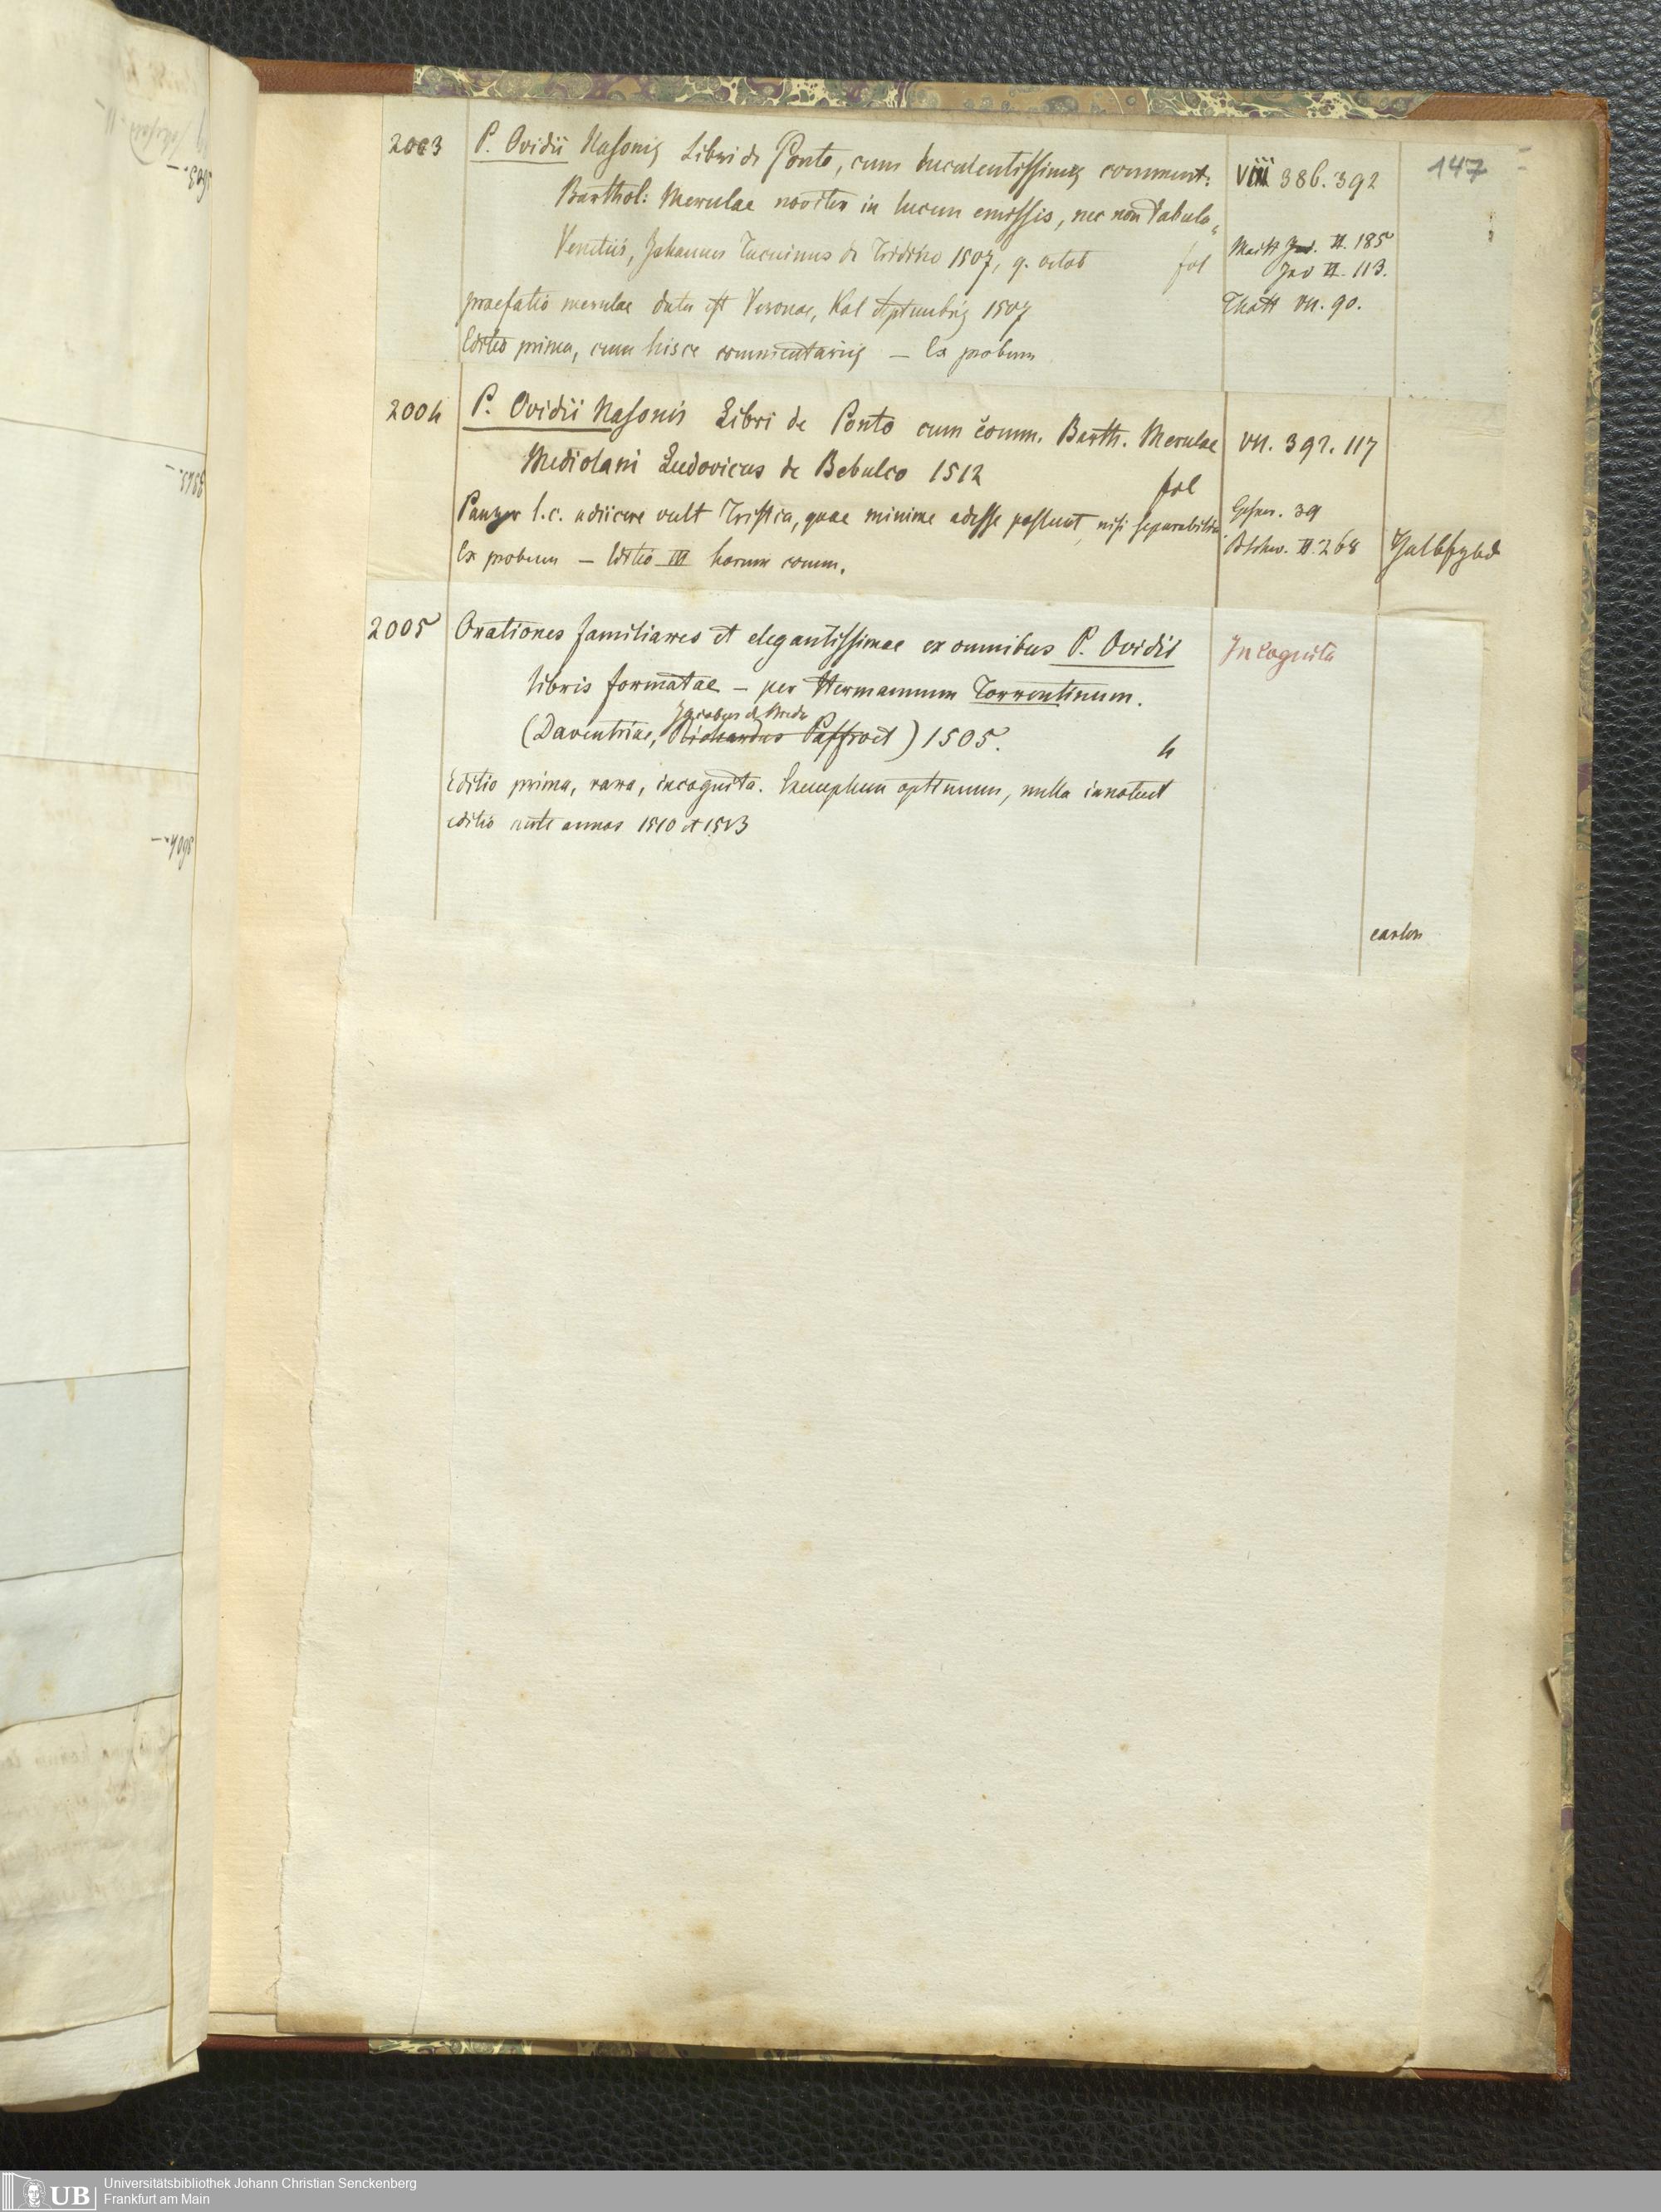 147
2003 P. Ovidii Nasonis Libri de Ponto, cum luculentissimis comment: viii 386. 392
Barthol: Merulae noviter in lucem emissis, nec non Tabula
Venetiis, Johannes Tacuinus de Tridino 1507, 9. octob fol Maitt II. 185
II. 113.
praefatio merulae data est Veronae, Kal Septembris 1507 Thott VII. 90.
Editio prima, cum hisce commentariis — Ex probum
2004 P. Ovidii Nasonis Libri de Ponto cum comm. Barth. Merulae VII. 392. 117
Mediolani Ludovicus de Bebulco 1512 fol
Panzer l.c. adiicere vult Tristia, quae minime adesse possunt, nisi separabilia Gesner. 39
Ex probum — Editio III harum comm. II. 268
2005 Orationes familiares et elegantissimae ex omnibus P. Ovidii Incognita
libris formatae — per Hermannum Torrentinum.
Jacobus de Breda
(Daventriae, Richardus Paffroet) 1505. 4
Editio prima, rara, incognita. Exemplum optimum, nulla innotuit
editio ante annos 1510 et 1523
carton
UB Universitätsbibliothek Johann Christian Senckenberg
Frankfurt am Main